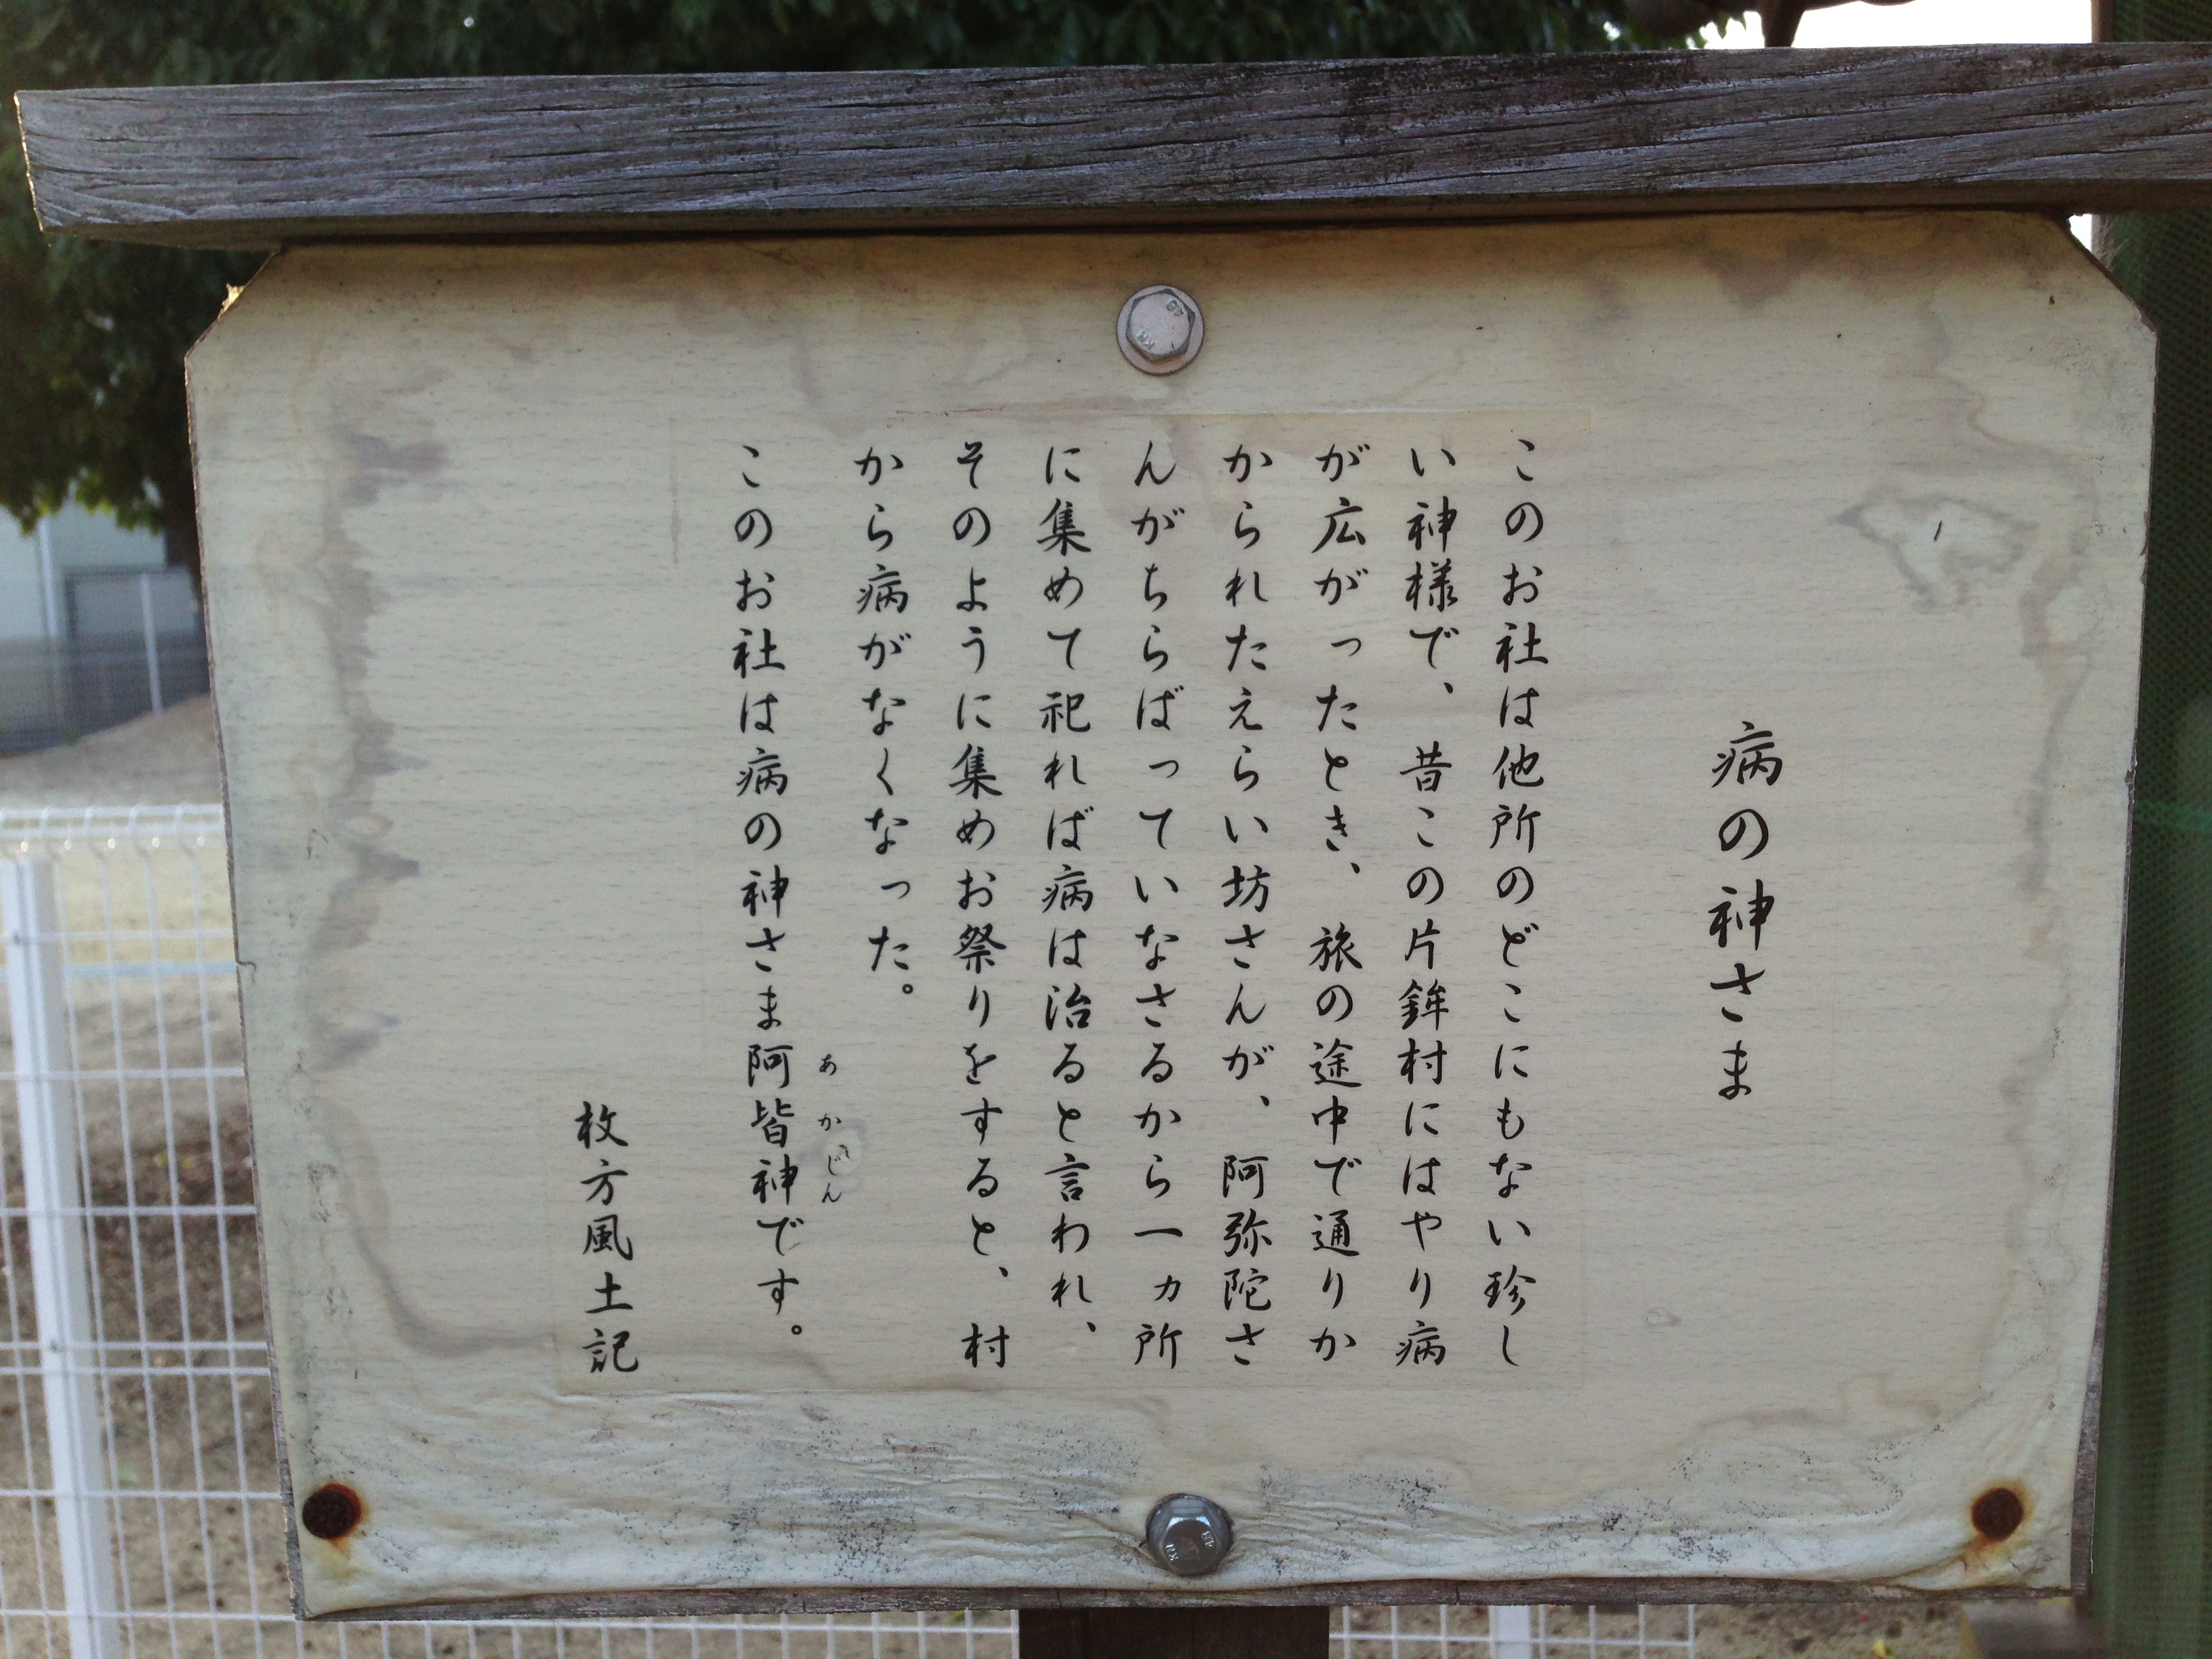 病の神さま
このお社は他所のどこにもない珍し
い神様で、昔この片鉾村にはやり病
が広がったとき、旅の途中で通りか
かられたえらい坊さんが、阿弥陀さ
んがちらばっていなさるから一ヵ所
に集めて祀れば病は治ると言われ、
そのように集めお祭りをすると、村
から病がなくなった。
このお社は病の神さま阿皆神です。
あかいじん
枚方風土記